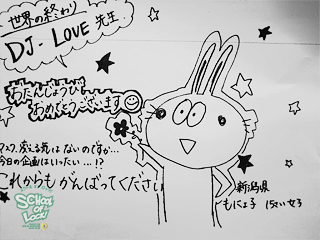 世界の終わり
DJ-LOVE先生
おたんじょうび
おめでとうございます
マスク、変える気はないのですか…
今日の企画はいったい…!?
これからもがんばってください
新潟県
もにょ子 15さい 女子
SCHOOL OF LOCK!